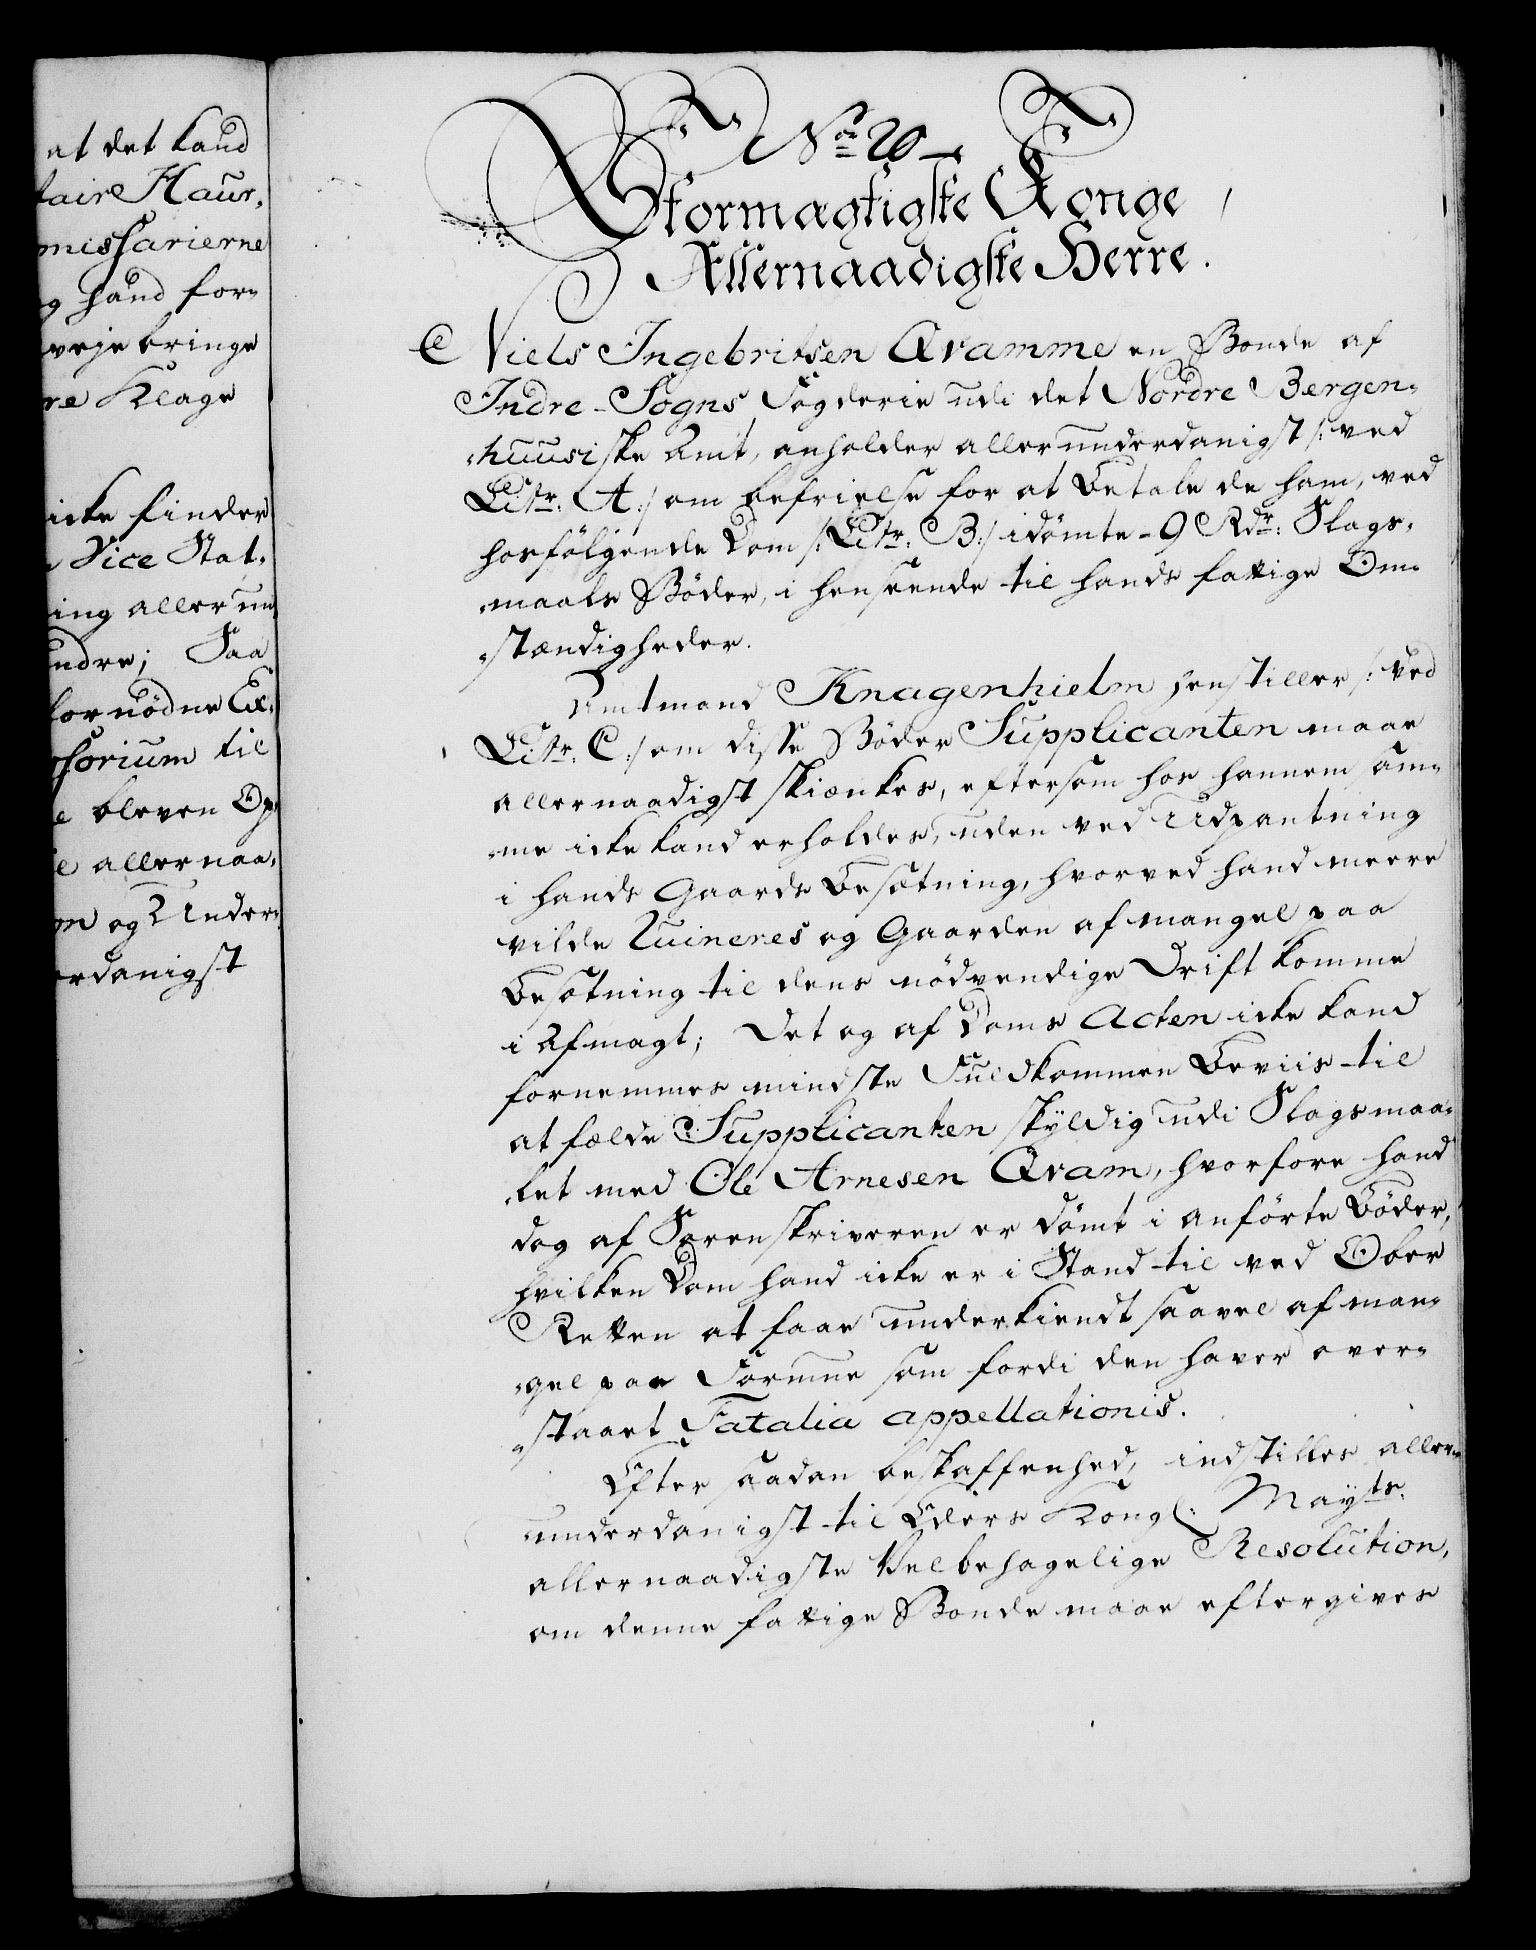 at det kand
taire Haur,
missarierne
g hand for-
veje bringe
re Klage
icke finder
Vice Stat-
ing aller un
ndre; Saa
fornødne Ex,
ssorium til
e bleven Op,
e allernaa,
om og Under,
erdanigst
No 20
Stormægtigste Konge,
Allernaadigste Herre.
Niels Ingebritsen Qvamme en Bonde af
Indre-Sogns Fogderie udi det Nordre Bergen-
huusiske Amt, anholder allerunderdanigst /: ved
Litr: A :/ om befrielse for at betale de ham, ved
hosfølgende Dom /: Litr: B :/ idømte 9 Rdr: Slags-
maals Bøder, i henseende til hands fattige Om-
stændigheder.
Amtmand Knagenhielm henstiller /: ved
Litr: C :/ om disse Bøder Supplicanten maae
allernaadigst skiænkes, eftersom hos hannem sam-
me icke kand erholdes, uden ved Udpantning
i hands Gaards Besætning, hvorved hand meere
vilde ruineres og Gaarden af mangel paa
Besætning til dens nødvendige Drift komme
i Afmagt; Det og af Doms Acten icke kand
fornemmes mindste Fuldkommen Beviis til
at fælde Supplicanten skyldig udi Slagsmaa-
let med Ole Arnesen Qvam, hvorfore hand
dog af Sorenskriveren er dømt i anførte Bøder,
hvilken Dom hand icke er i Stand til ved Ober
Retten at faae underkiendt saavel af man-
gel paa Formue som fordi den haver over-
staaet Fatalia appellationis.
Efter saadan beskaffenhed, indstilles aller-
underdanigst til Eders Kongl: Mayts:
allernaadigste Velbehagelige Resolution,
om denne fattige Bonde maae eftergives